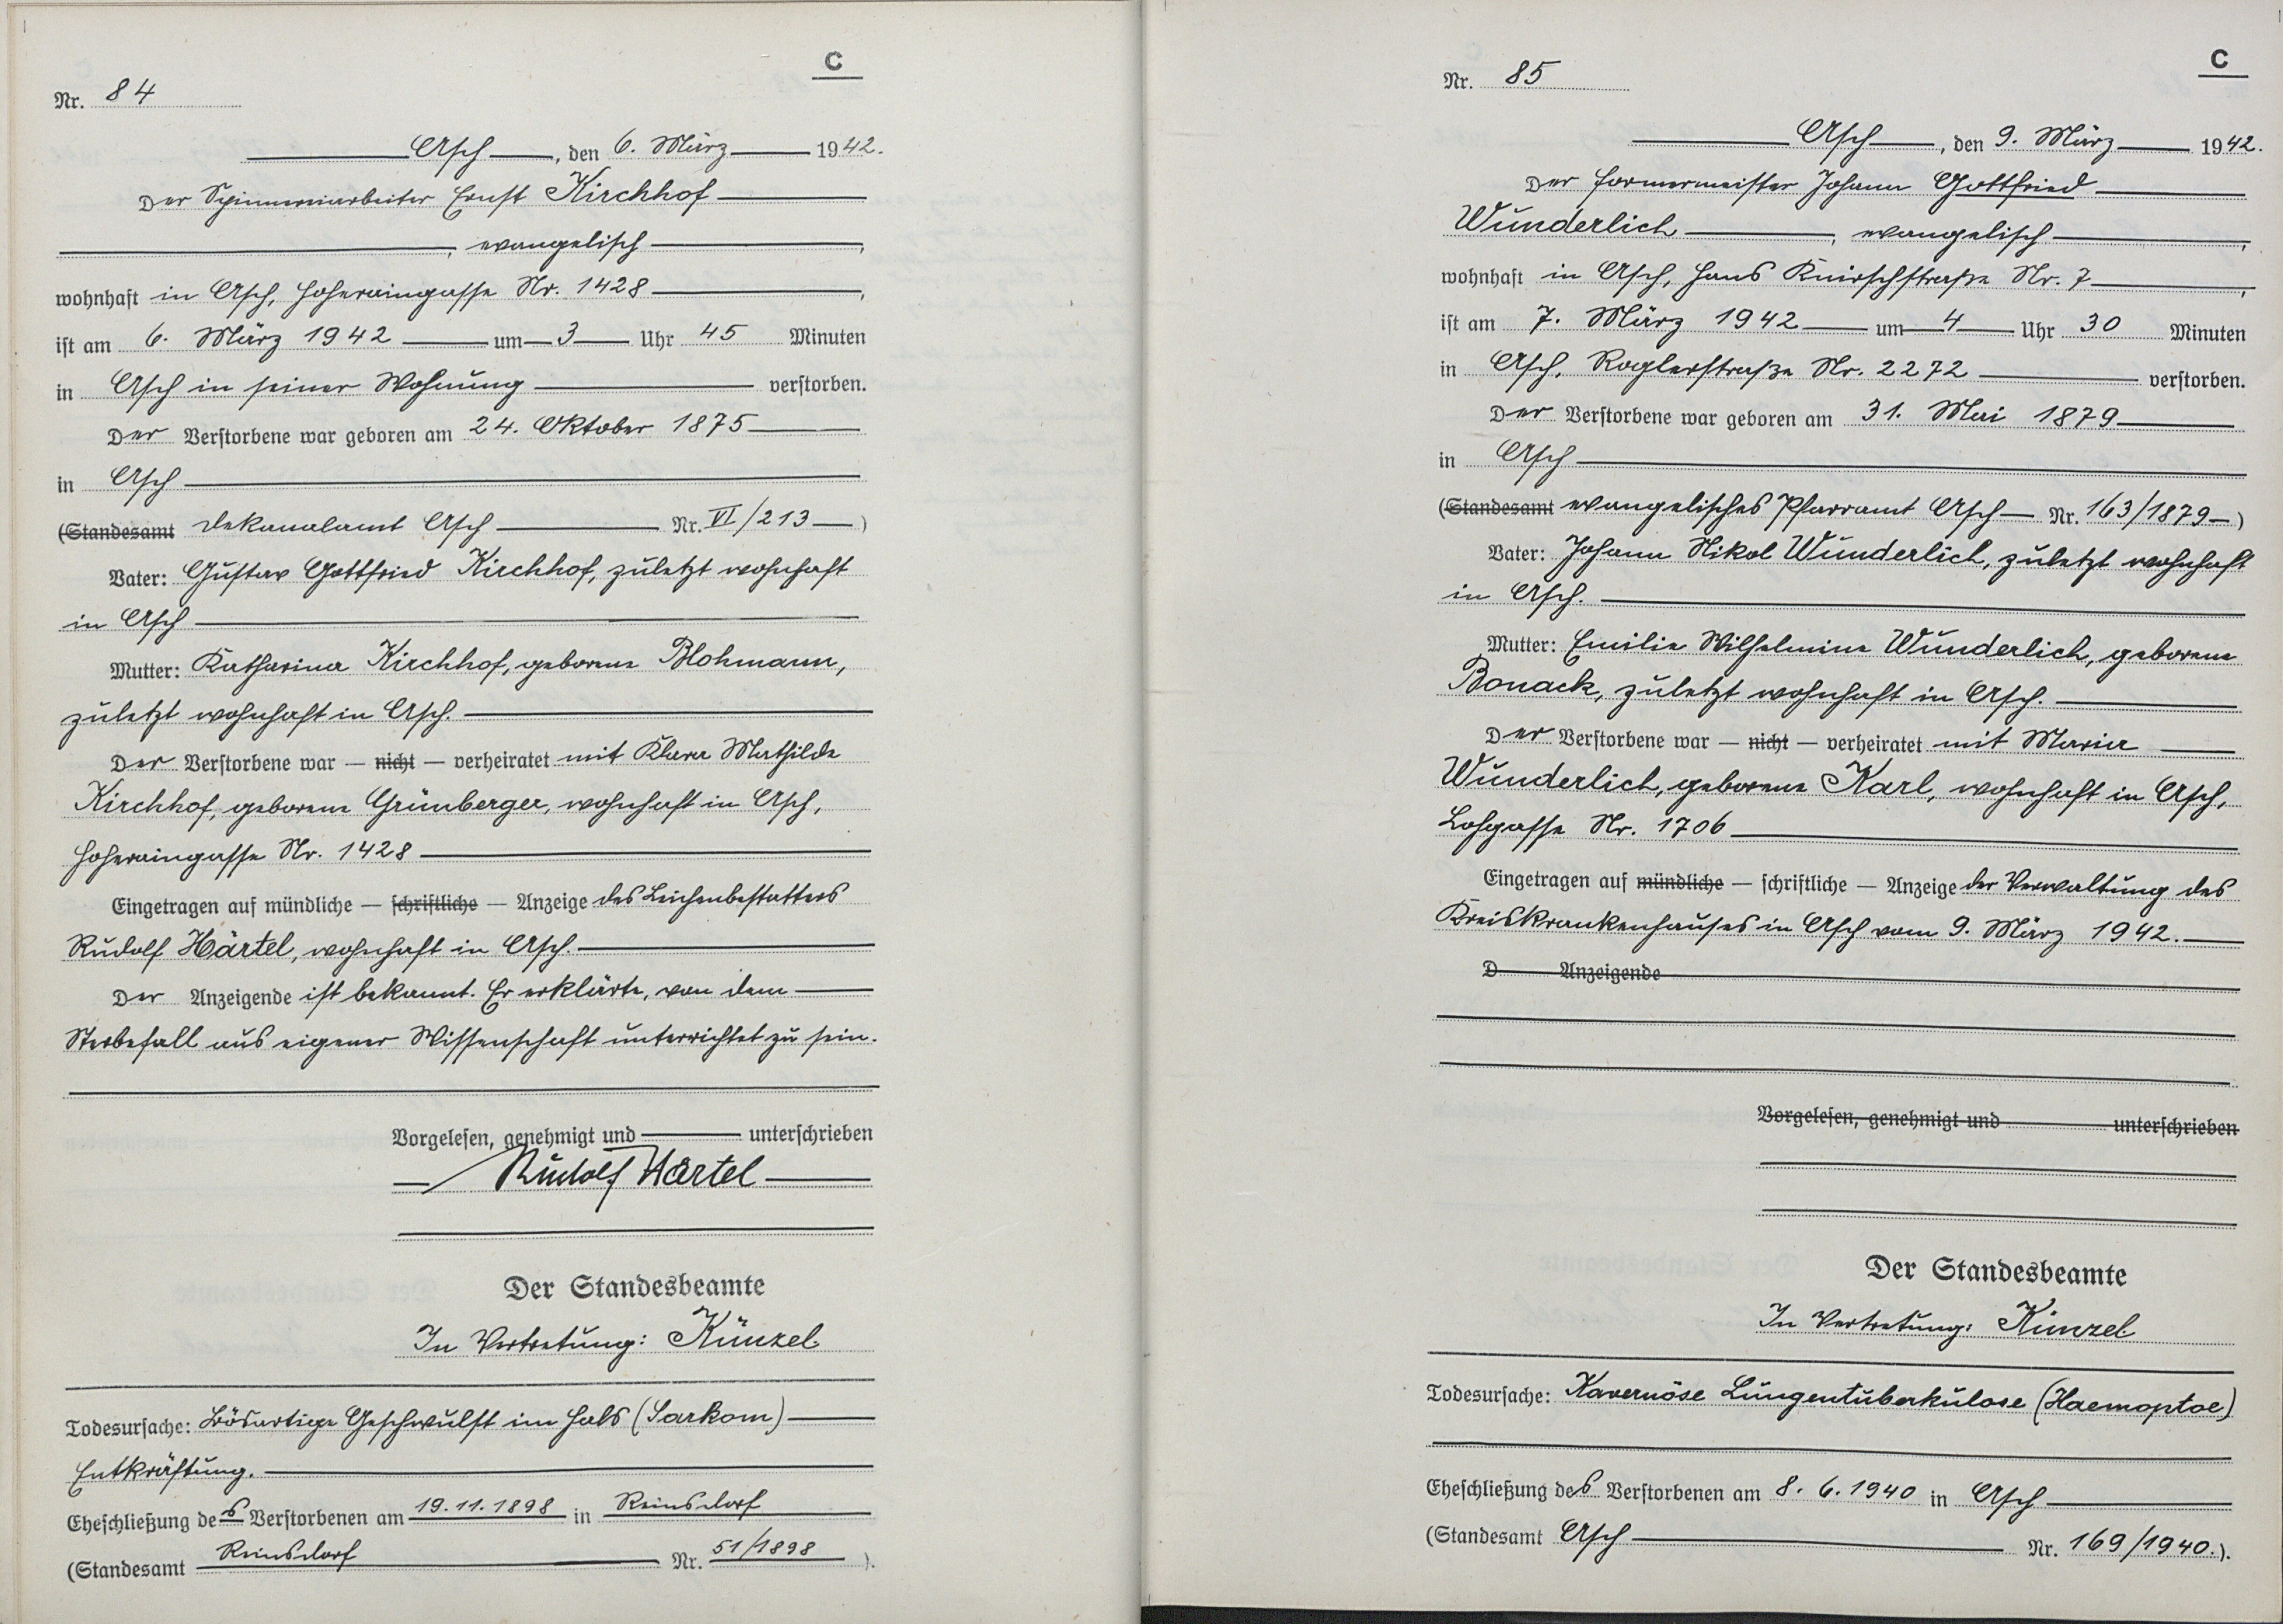 C
Nr. 84
Asch, den 6. März 1942.
Der Spinnereiarbeiter Ernst Kirchhof
, evangelisch,
wohnhaft in Asch, Hoheraingasse Nr. 1428,
ist am 6. März 1942 um 3 Uhr 45 Minuten
in Asch in seiner Wohnung verstorben.
Der Verstorbene war geboren am 24. Oktober 1875
in Asch
(Standesamt Dekanalamt Asch Nr. VI/213)
Vater: Gustav Gottfried Kirchhof, zuletzt wohnhaft
in Asch
Mutter: Katharina Kirchhof, geborene Blohmann,
zuletzt wohnhaft in Asch.
Der Verstorbene war — nicht — verheiratet mit Klara Mathilde
Kirchhof, geborene Grünberger, wohnhaft in Asch,
Hoheraingasse Nr. 1428
Eingetragen auf mündliche — schriftliche — Anzeige des Leichenbestatters
Rudolf Härtel, wohnhaft in Asch.
Der Anzeigende ist bekannt. Er erklärte, von dem
Sterbefall aus eigener Wissenschaft unterrichtet zu sein.
Vorgelesen, genehmigt und unterschrieben
Rudolf Härtel
Der Standesbeamte
In Vertretung: Künzel
Todesursache: Bösartige Geschwulst im Hals (Sarkom)
Entkräftung.
Eheschließung des Verstorbenen am 19.11.1898 in Reinsdorf
(Standesamt Reinsdorf Nr. 51/1898).
C
Nr. 85
Asch, den 9. März 1942.
Der Formermeister Johann Gottfried
Wunderlich, evangelisch,
wohnhaft in Asch, Hans Knirschstraße Nr. 7,
ist am 7. März 1942 um 4 Uhr 30 Minuten
in Asch, Roglerstraße Nr. 2272 verstorben.
Der Verstorbene war geboren am 31. Mai 1879
in Asch
(Standesamt evangelisches Pfarramt Asch Nr. 163/1879)
Vater: Johann Nikol Wunderlich, zuletzt wohnhaft
in Asch.
Mutter: Emilie Wilhelmine Wunderlich, geborene
Bonack, zuletzt wohnhaft in Asch.
Der Verstorbene war — nicht — verheiratet mit Maria
Wunderlich, geborene Karl, wohnhaft in Asch,
Lohgasse Nr. 1706
Eingetragen auf mündliche — schriftliche — Anzeige der Verwaltung des
Kreiskrankenhauses in Asch vom 9. März 1942.
D Anzeigende
Vorgelesen, genehmigt und unterschrieben
Der Standesbeamte
In Vertretung: Künzel
Todesursache: Kavernöse Lungentuberkulose (Haemoptoe)
Eheschließung des Verstorbenen am 8. 6. 1940 in Asch
(Standesamt Asch Nr. 169/1940.).